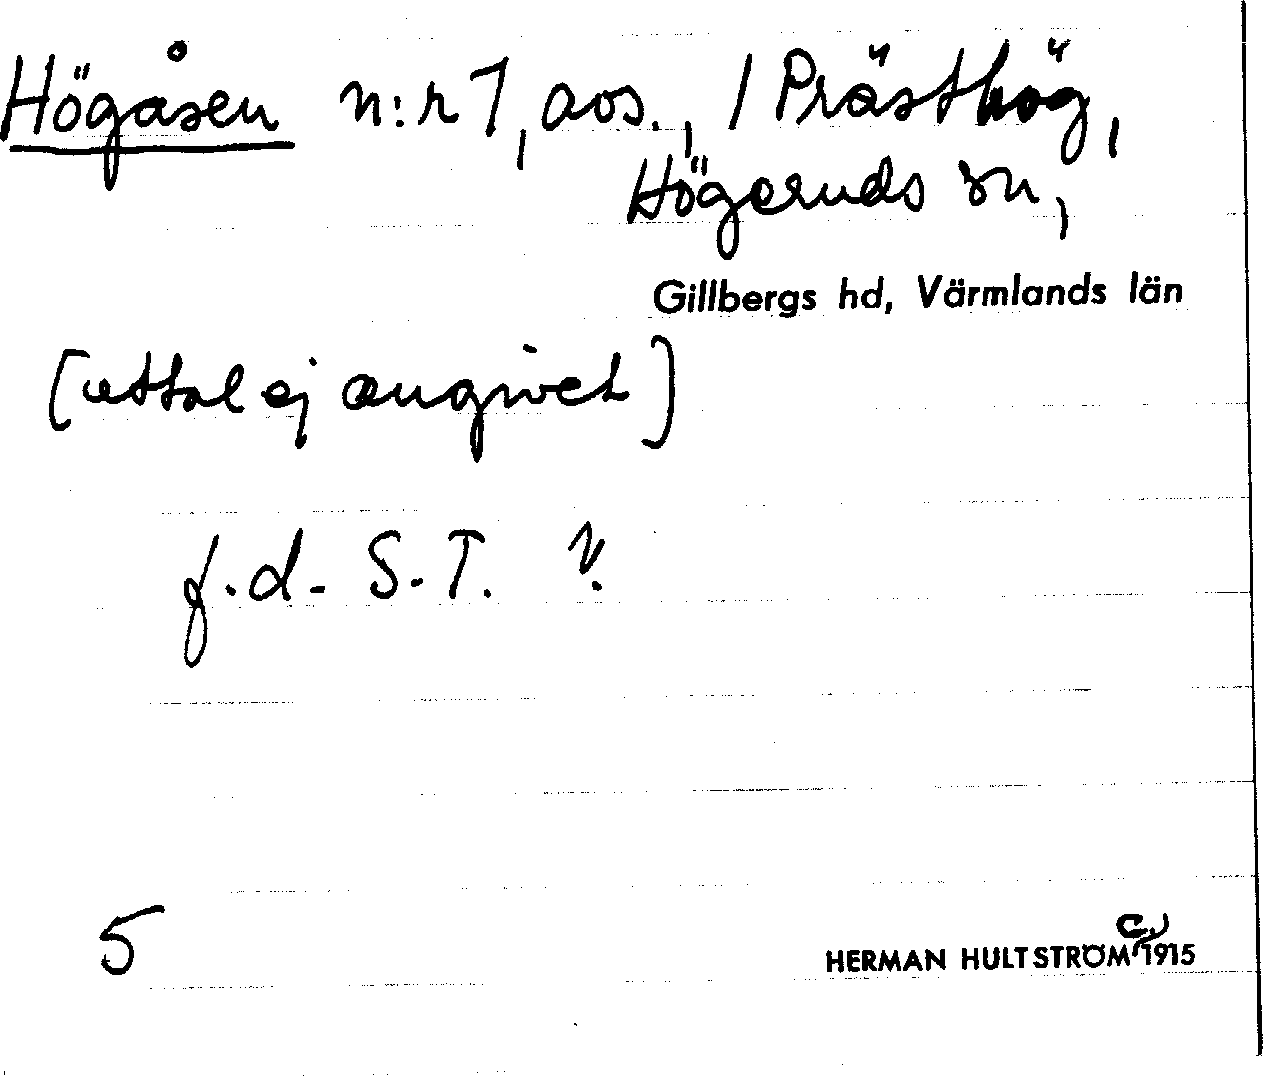 Högåsen n:r 1, aos., / Prästhög,
Högeruds sn,
Gillbergs hd, Värmlands län
[uttal ej angivet]
f.d. S.T. ?
5
c.
HERMAN HULTSTRÖM 1915